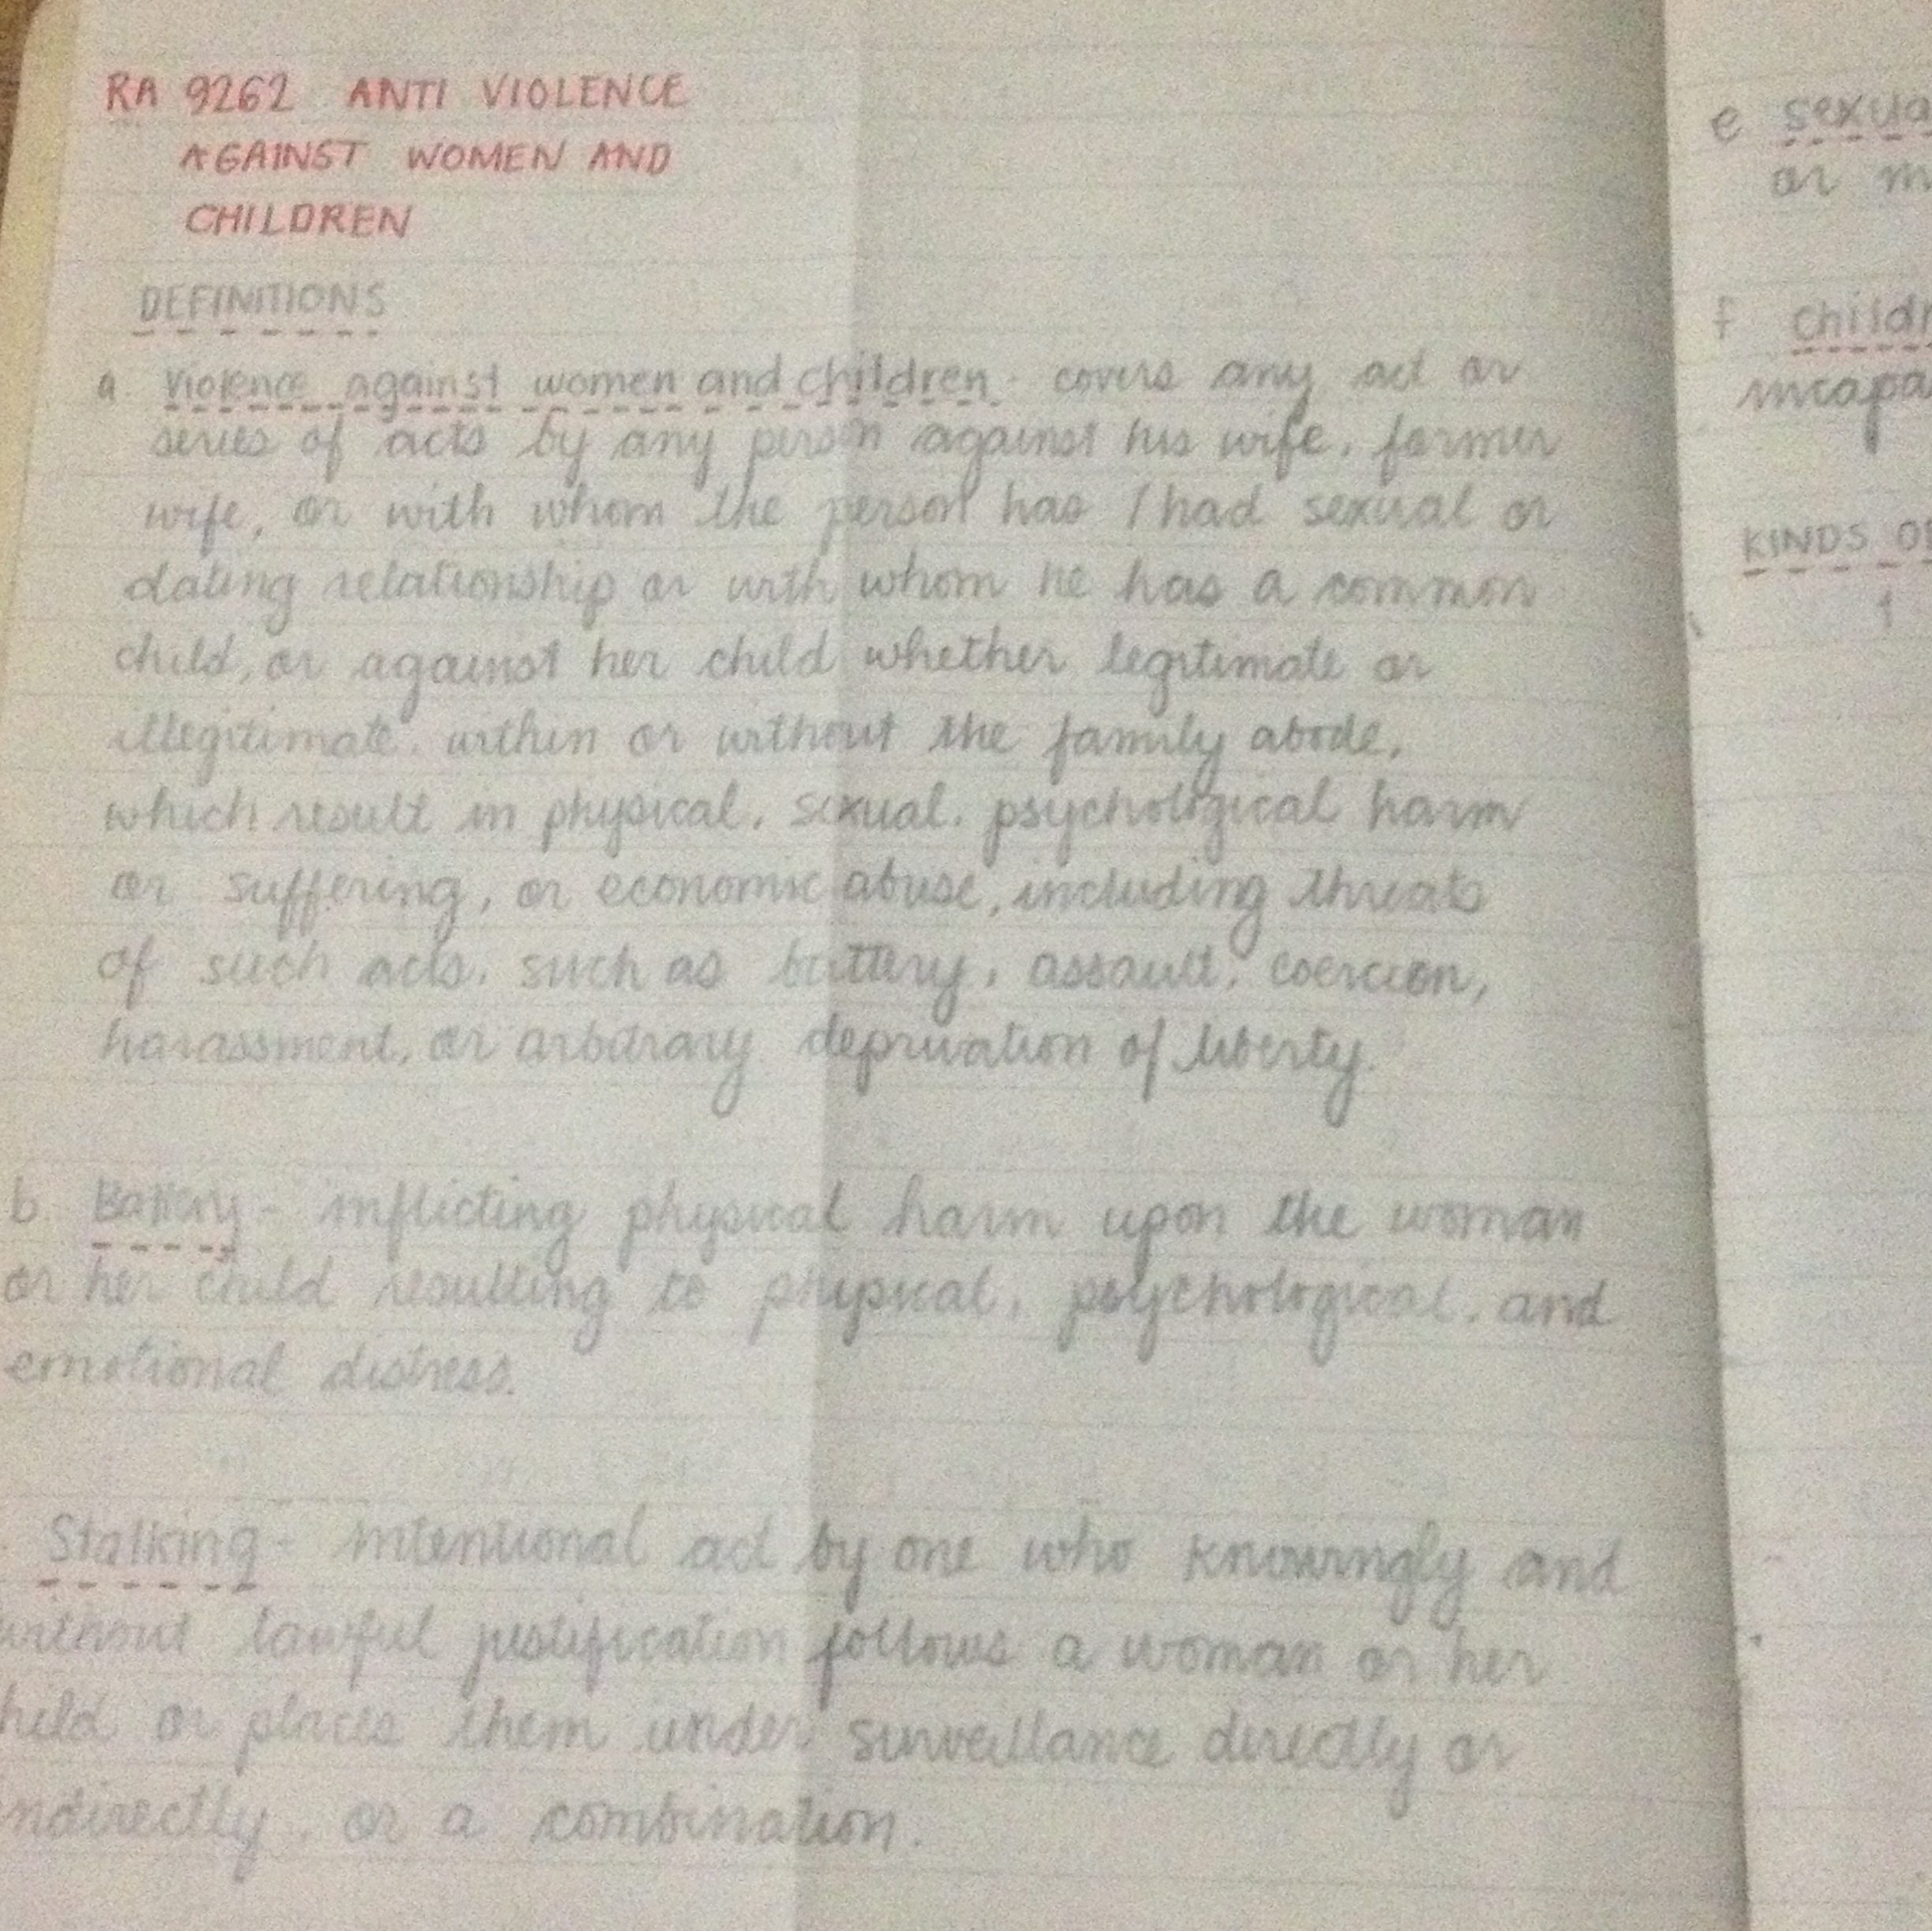 RA 9262 ANTI VIOLENCE
AGAINST WOMEN AND
CHILDREN
DEFINITIONS
a. Violence against women and children - covers any act or
series of acts by any person against his wife, former
wife, or with whom the person has / had sexual or
dating relationship or with whom he has a common
child, or against her child whether legitimate or
illegitimate, within or without the family abode,
which result in physical, sexual, psychological harm
or suffering, or economic abuse, including threats
of such acts, such as battery, assault, coercion,
harassment, or arbitrary deprivation of liberty.
b. Battery - inflicting physical harm upon the woman
or her child resulting to physical, psychological, and
emotional distress.
Stalking - intentional act by one who knowingly and
without lawful justification follows a woman or her
hild or places them under surveillance directly or
ndirectly, or a combination.
e sexua
or m
f childr
incapa
KINDS OF
1